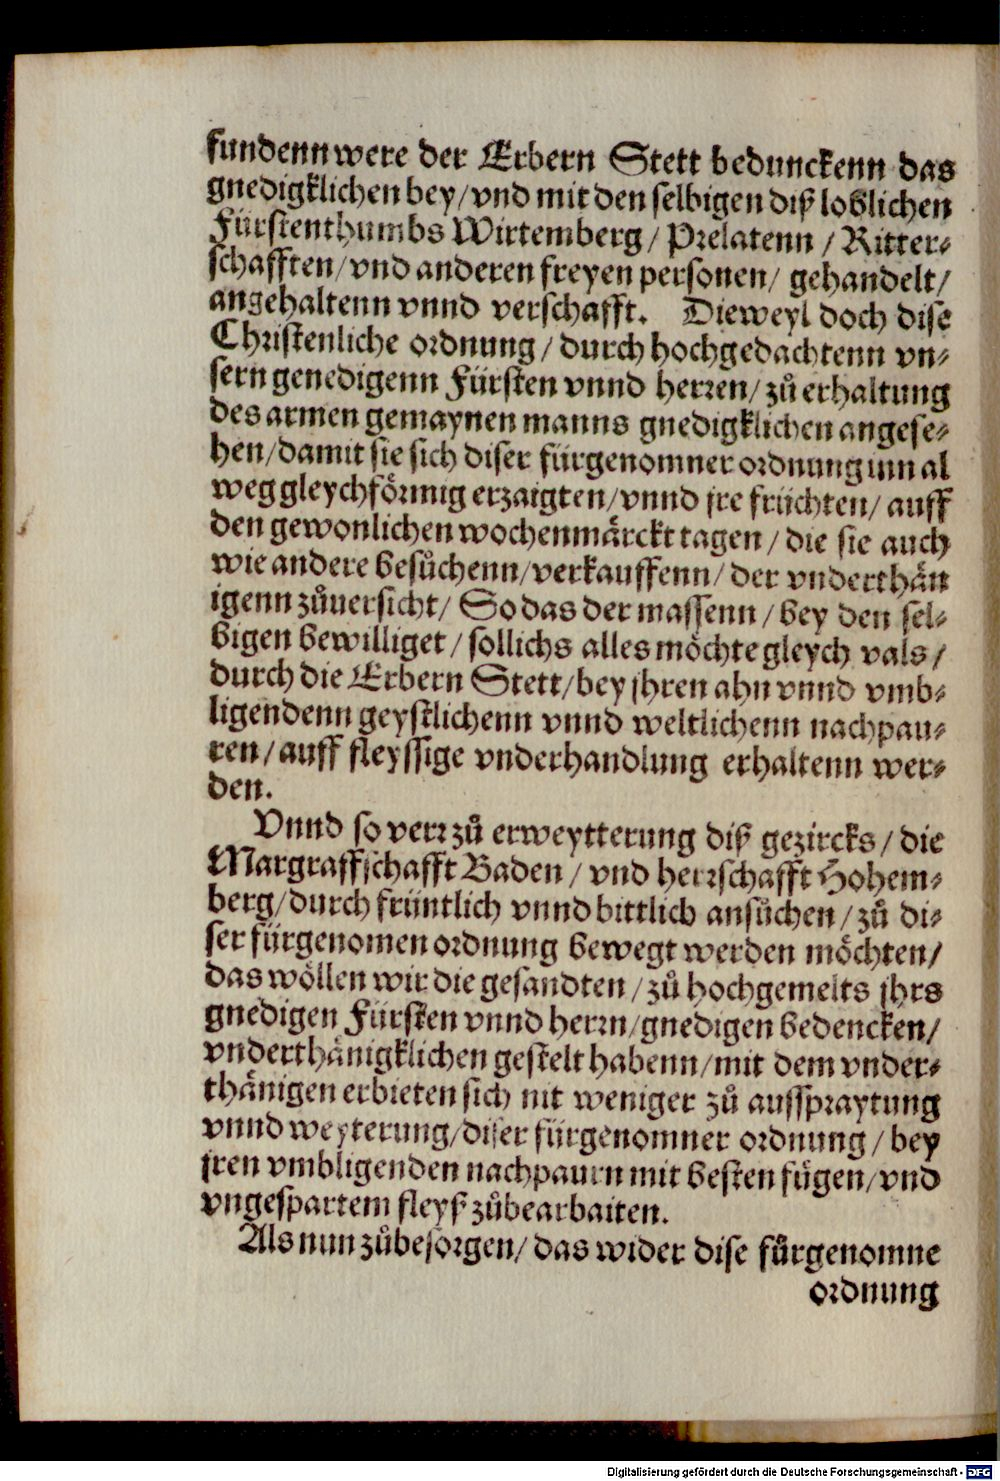 fundenn were der Erbern Stett bedunckenn das
gnedigklichen bey/ vnd mit den selbigen diß loblichen
Fürstenthumbs Wirtemberg/ Prelatenn/ Ritter-
schafften/ vnd anderen freyen personen/ gehandelt/
angehaltenn vnnd verschafft. Dieweyl doch dise
Christenliche ordnung/ durch hochgedachtenn vn-
sern genedigenn Fürsten vnnd herren/ zů erhaltung
des armen gemaynen manns gnedigklichen angese-
hen/ damit sie sich diser fürgenomner ordnung inn al
weg gleychförmig erzaigten/ vnnd jre früchten/ auff
den gewonlichen wochenmärckt tagen/ die sie auch
wie andere besůchenn/ verkauffenn/ der vnderthän
igenn zůuersicht/ So das der massenn/ bey den sel-
bigen bewilliget/ sollichs alles möchte gleych vals/
durch die Erbern Stett/ bey jhren ahn vnnd vmb-
ligendenn geystlichenn vnnd weltlichenn nachpau-
ren/ auff fleyssige vnderhandlung erhaltenn wer-
den.
Vnnd so verr zů erweytterung diß gezircks/ die
Margraffschafft Baden/ vnd herrschafft Hohem-
berg/ durch früntlich vnnd bittlich ansůchen/ zů di-
ser fürgenomen ordnung bewegt werden möchten/
das wöllen wir die gesandten/ zů hochgemelts jhrs
gnedigen Fürsten vnnd herrn/ gnedigen bedencken/
vnderthänigklichen gestelt habenn/ mit dem vnder-
thänigen erbieten sich nit weniger zů ausspraytung
vnnd weyterung/ diser fürgenomner ordnung/ bey
jren vmbligenden nachpaurn mit besten fügen/ vnd
vngespartem fleyß zůbearbaiten.
Als nun zůbesorgen/ das wider dise fůrgenomne
ordnung
Digitalisierung gefördert durch die Deutsche Forschungsgemeinschaft - DFG